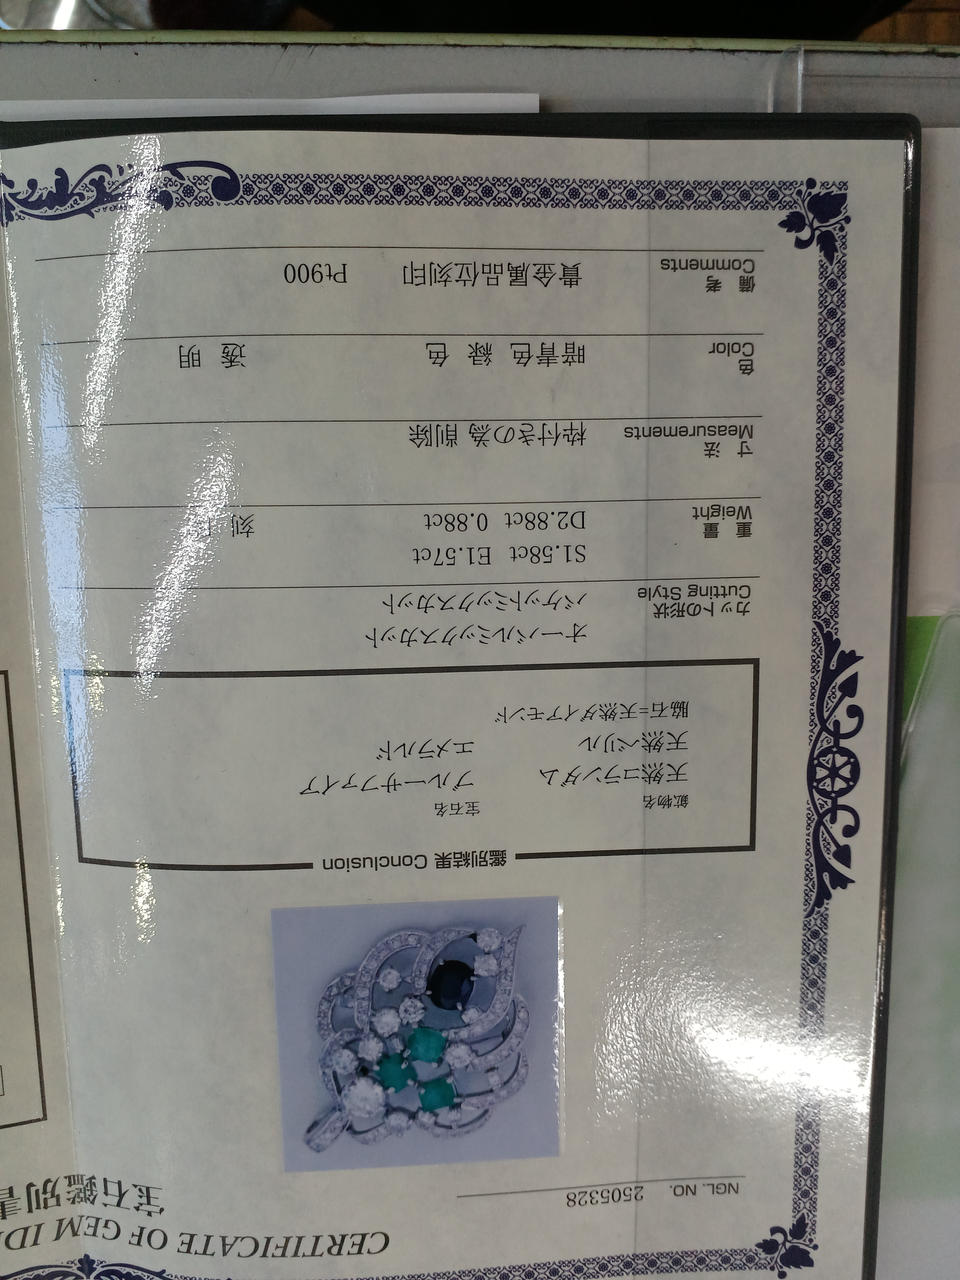 CERTIFICATE OF GEM
宝石鑑別書
NGL. NO. 2505328
鑑別結果 Conclusion
鉱物名 宝石名
天然コランダム ブルーサファイア
天然ベリル エメラルド
脇石=天然ダイアモンド
カットの形状 オーバルミックスカット
Cutting Style バケットミックスカット
重量 S1.58ct E1.57ct
Weight D2.88ct 0.88ct 刻
寸法 枠付きの為 削除
Measurements
色 暗青色 緑色 透明
Color
備考 貴金属品位刻印 Pt900
Comments